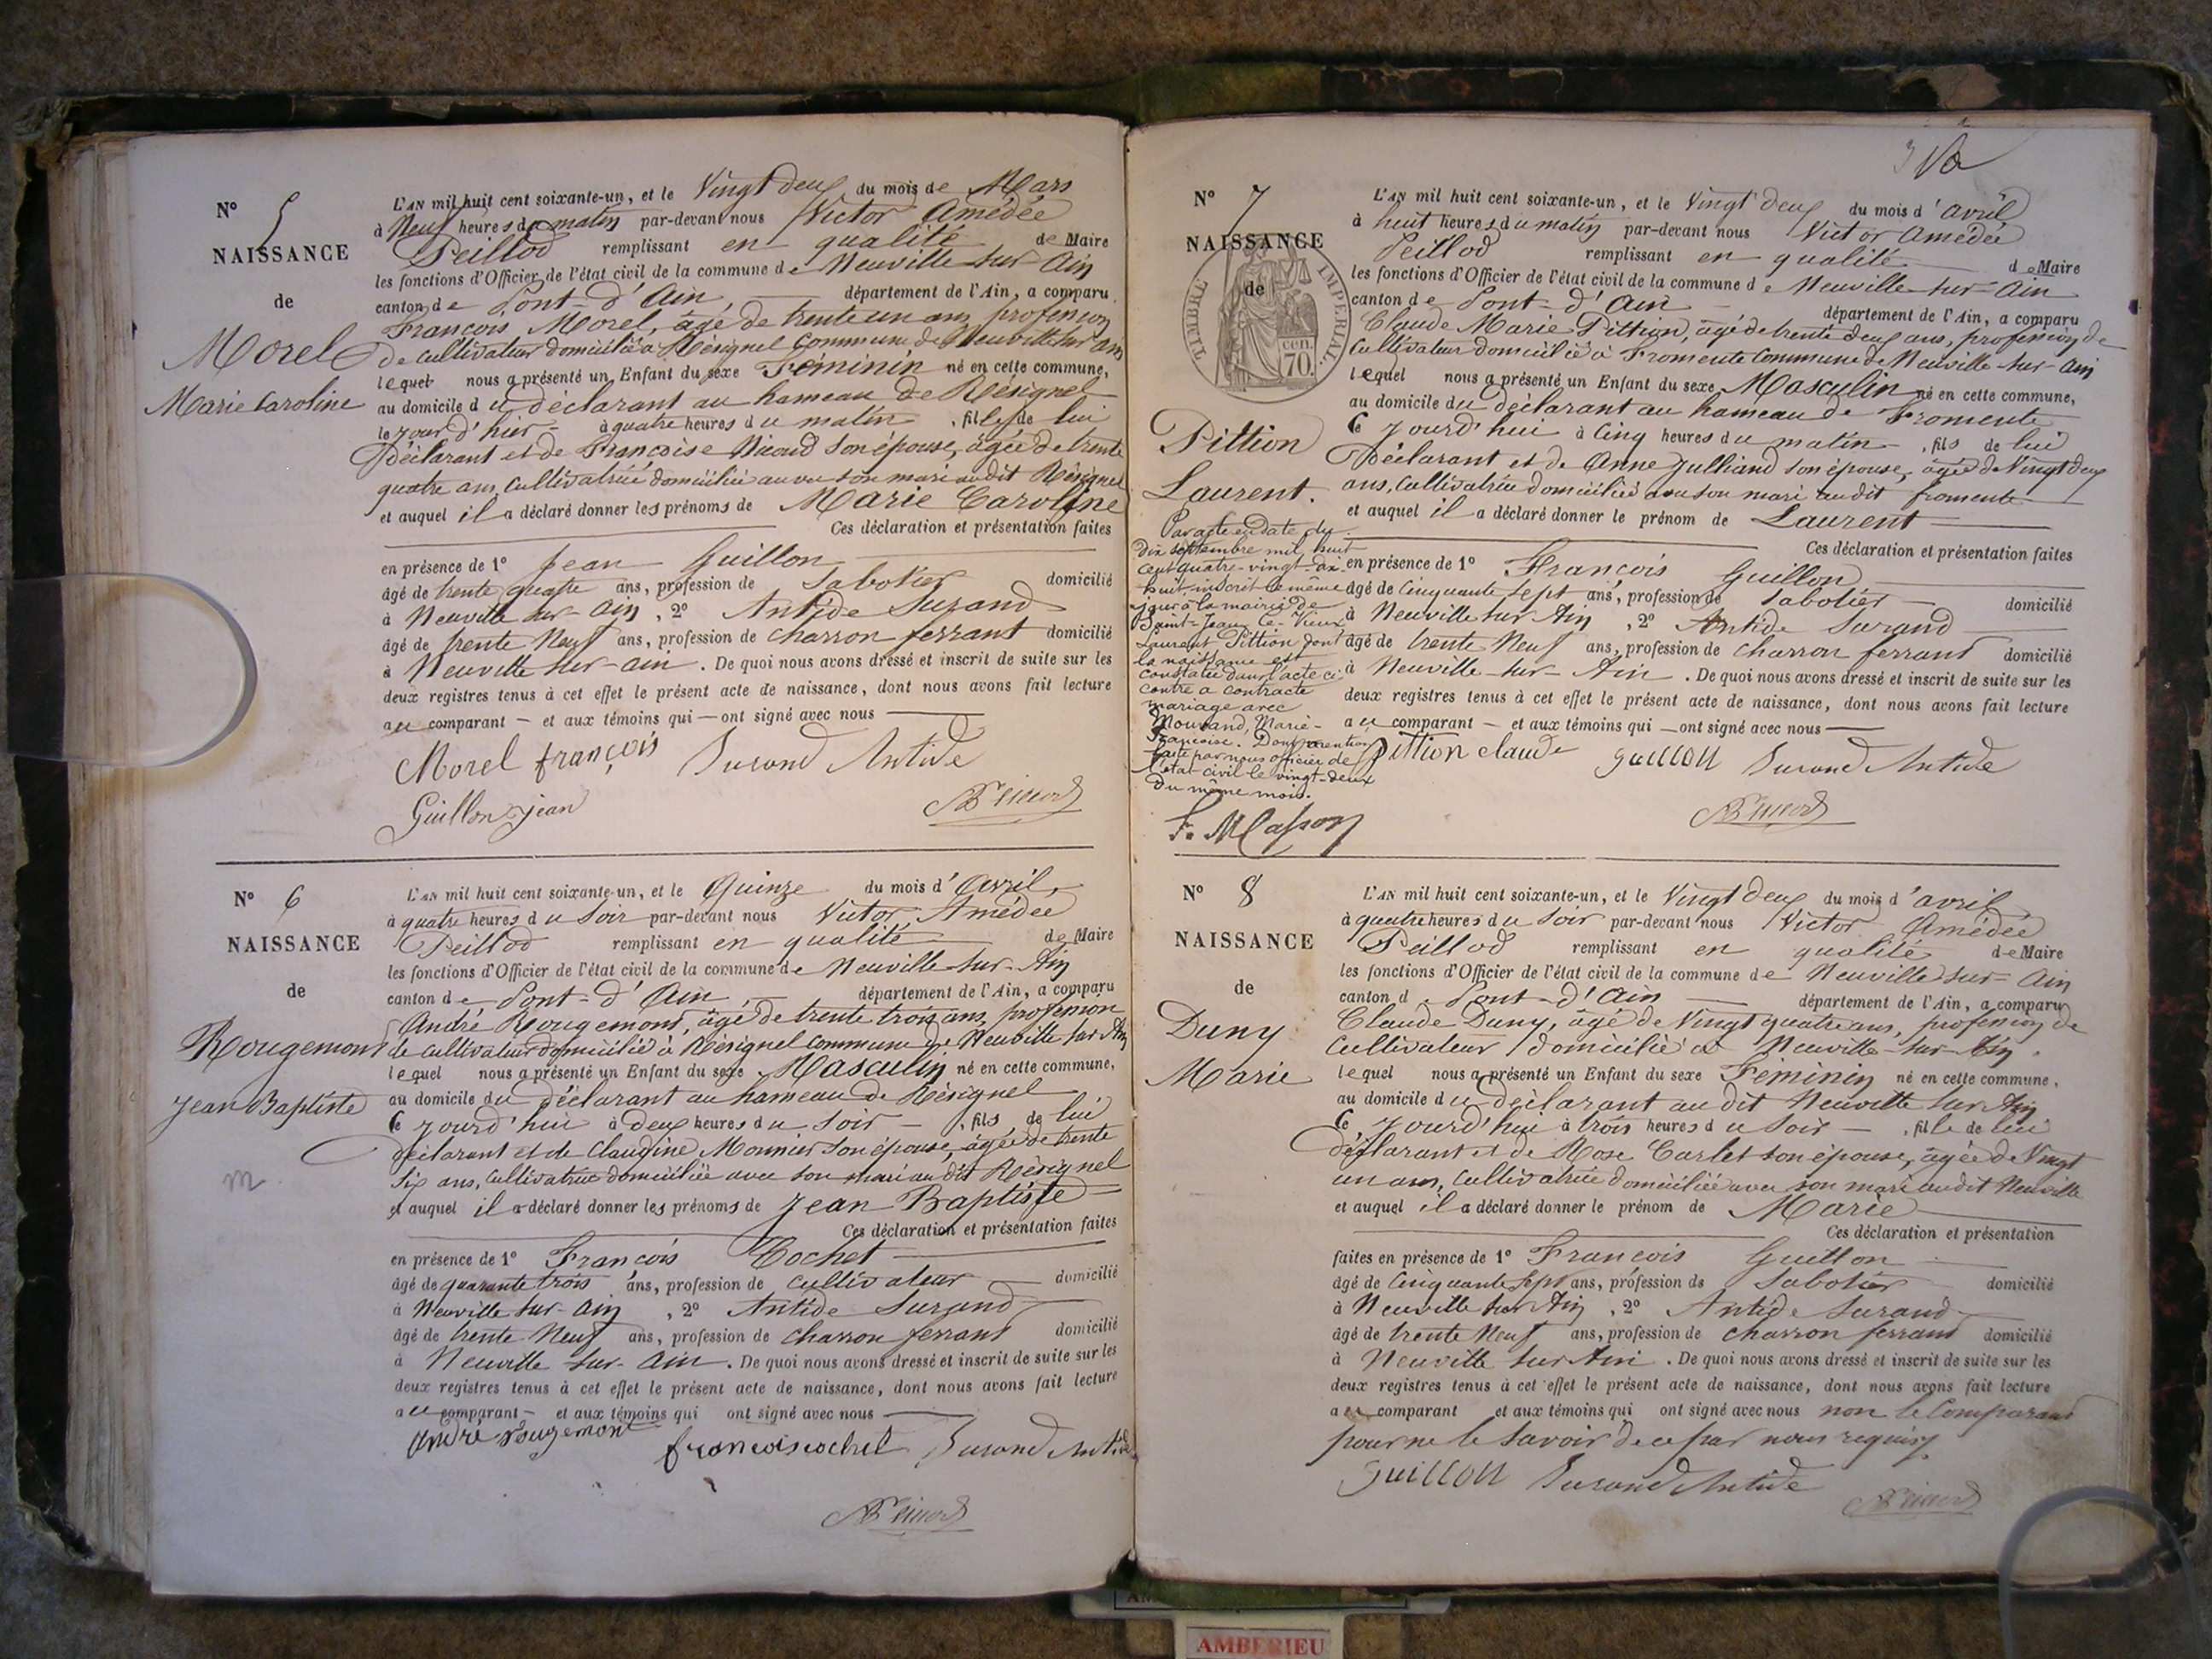 N° 5
NAISSANCE
de
Morel
Marie Caroline
L'AN mil huit cent soixante-un, et le Vingt deux du mois de Mars
à Neuf heures du matin par-devant nous Victor Amédée
Peillod remplissant en qualité de Maire
les fonctions d'Officier de l'état civil de la commune de Neuville sur Ain
canton de Pont-d'Ain, département de l'Ain, a comparu
François Morel, âgé de trente un ans, profession
de cultivateur domicilié à Résignel Commune de Neuville sur ain
lequel nous a présenté un Enfant du sexe Féminin né en cette commune,
au domicile du déclarant au hameau de Résignel
le jour d'hier à quatre heures du matin, fille de lui
déclarant et de Françoise son épouse, âgée de trente
quatre ans, cultivatrice domiciliée avec son mari audit Résignel
et auquel il a déclaré donner les prénoms de Marie Caroline
Ces déclaration et présentation faites
en présence de 1° Jean Guillon
âgé de trente quatre ans, profession de Sabotier domicilié
à Neuville sur-ain, 2° Antide Surand
âgé de trente Neuf ans, profession de charron ferrant domicilié
à Neuville sur-ain. De quoi nous avons dressé et inscrit de suite sur les
deux registres tenus à cet effet le présent acte de naissance, dont nous avons fait lecture
au comparant — et aux témoins qui — ont signé avec nous
Morel françois Surand Antide
Guillon jean
N° 6
NAISSANCE
de
Rougemont
Jean Baptiste
m
L'AN mil huit cent soixante-un, et le Quinze du mois d'avril,
à quatre heures du Soir par-devant nous Victor Amédée
Peillod remplissant en qualité de Maire
les fonctions d'Officier de l'état civil de la commune de Neuville-sur-Ain
canton de Pont-d'Ain, département de l'Ain, a comparu
André Rougemont, âgé de trente trois ans, profession
de cultivateur domicilié à Résignel commune de Neuville sur Ain
lequel nous a présenté un Enfant du sexe Masculin né en cette commune,
au domicile du déclarant au hameau de Résignel
Ce jourd'hui à deux heures du Soir —, fils de lui
déclarant et de Claudine Monnier son épouse, âgée de trente
six ans, cultivatrice domiciliée avec son mari au dit Résignel
et auquel il a déclaré donner les prénoms de Jean Baptiste
Ces déclaration et présentation faites
en présence de 1° François Cochet
âgé de quarante trois ans, profession de cultivateur domicilié
à Neuville sur-ain, 2° Antide Surand
âgé de trente Neuf ans, profession de charron ferrant domicilié
à Neuville sur-ain. De quoi nous avons dressé et inscrit de suite sur les
deux registres tenus à cet effet le présent acte de naissance, dont nous avons fait lecture
au comparant — et aux témoins qui ont signé avec nous
andré rougemont francois cochet Surand Antide
N° 7
NAISSANCE
de
TIMBRE IMPERIAL
70. cen.
Pittion
Laurent.
Par acte en date du
dix septembre mil huit
cent quatre-vingt-dix
huit, inscrit le même
jour à la mairie de
Saint-Jean-le-Vieux
Laurent Pittion dont
la naissance est
constatée dans l'acte ci-
contre a contracté
mariage avec
Marie-
Françoise. Dont mention
faite par nous officier de
l'état civil le vingt-deux
du même mois.
F. Masson
L'AN mil huit cent soixante-un, et le Vingt deux du mois d'avril
à huit heures du matin par-devant nous Victor Amédée
Peillod remplissant en qualité de Maire
les fonctions d'Officier de l'état civil de la commune de Neuville-sur-Ain
canton de Pont-d'Ain département de l'Ain, a comparu
Claude Marie Pittion, âgé de trente deux ans, profession de
Cultivateur domicilié à Fromente commune de Neuville-sur-ain
lequel nous a présenté un Enfant du sexe Masculin né en cette commune,
au domicile du déclarant au hameau de Fromente
Ce jourd'hui à Cinq heures du matin, fils de lui
déclarant et de Anne Julliand son épouse, âgée de Vingt deux
ans, cultivatrice domiciliée avec son mari audit fromente
et auquel il a déclaré donner le prénom de Laurent
Ces déclaration et présentation faites
en présence de 1° François Guillon
âgé de Cinquante sept ans, profession de Sabotier domicilié
à Neuville sur Ain, 2° Antide Surand
âgé de trente Neuf ans, profession de charron ferrant domicilié
à Neuville-sur-Ain. De quoi nous avons dressé et inscrit de suite sur les
deux registres tenus à cet effet le présent acte de naissance, dont nous avons fait lecture
au comparant — et aux témoins qui — ont signé avec nous
pittion claude guillon Surand Antide
N° 8
NAISSANCE
de
Duny
Marie
L'AN mil huit cent soixante-un, et le Vingt deux du mois d'avril
à quatre heures du Soir par-devant nous Victor Amédée
Peillod remplissant en qualité de Maire
les fonctions d'Officier de l'état civil de la commune de Neuville sur-Ain
canton de Pont-d'Ain département de l'Ain, a comparu
Claude Duny, âgé de Vingt quatre ans, profession de
Cultivateur domicilié à Neuville-sur-Ain
lequel nous a présenté un Enfant du sexe Féminin né en cette commune,
au domicile du déclarant au dit Neuville sur Ain
Ce jourd'hui à trois heures du Soir —, fille de lui
déclarant et de Rose Carlet son épouse, âgée de Vingt
un ans, Cultivatrice domiciliée avec son mari audit Neuville
et auquel il a déclaré donner le prénom de Marie
Ces déclaration et présentation
faites en présence de 1° François Guillon
âgé de Cinquante sept ans, profession de Sabotier domicilié
à Neuville sur Ain, 2° Antide Surand
âgé de trente Neuf ans, profession de charron ferrant domicilié
à Neuville sur Ain. De quoi nous avons dressé et inscrit de suite sur les
deux registres tenus à cet effet le présent acte de naissance, dont nous avons fait lecture
au comparant et aux témoins qui ont signé avec nous non le Comparant
pour ne le savoir de ce par nous requis.
guillon Surand Antide
AMBERIEU